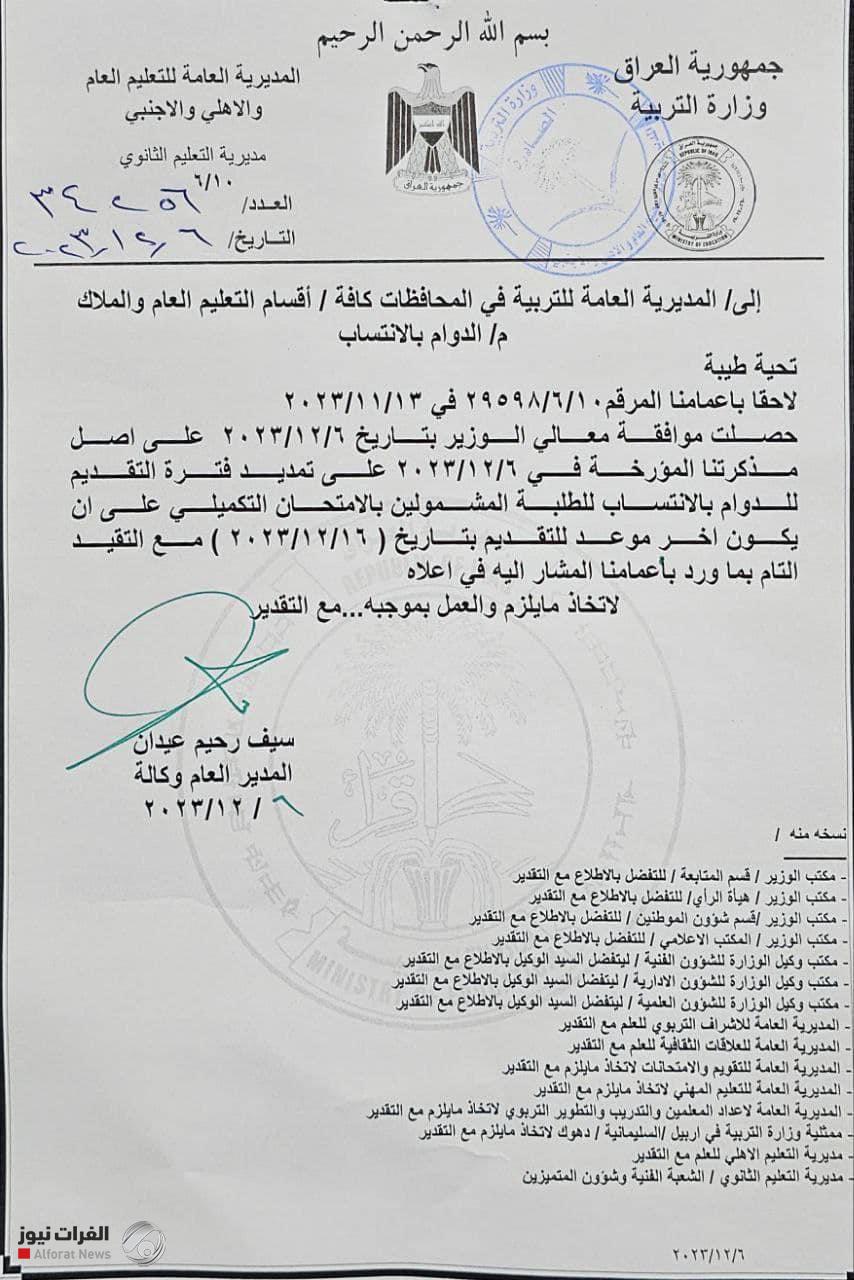 بسم الله الرحمن الرحيم
جمهورية العراق
وزارة التربية
المديرية العامة للتعليم العام
والاهلي والاجنبي
مديرية التعليم الثانوي
٦/١٠
العدد/ ٣٤٢٥٦
التاريخ/ ٢٠٢٣/١٢/٦
جمهورية العراق
وزارة التربية
الصادرة
REPUBLIC OF IRAQ
MINISTRY OF EDUCATION
إلى/ المديرية العامة للتربية في المحافظات كافة / أقسام التعليم العام والملاك
م/ الدوام بالانتساب
تحية طيبة
لاحقا باعمامنا المرقم٢٩٥٩٨/٦/١٠ في ٢٠٢٣/١١/١٣
حصلت موافقة معالي الوزير بتاريخ ٢٠٢٣/١٢/٦ على اصل
مذكرتنا المؤرخة في ٢٠٢٣/١٢/٦ على تمديد فترة التقديم
للدوام بالانتساب للطلبة المشمولين بالامتحان التكميلي على ان
يكون اخر موعد للتقديم بتاريخ ( ٢٠٢٣/١٢/١٦ ) مع التقيد
التام بما ورد بأعمامنا المشار اليه في اعلاه
لاتخاذ مايلزم والعمل بموجبه...مع التقدير
سيف رحيم عيدان
المدير العام وكالة
٦ / ٢٠٢٣/١٢
نسخه منه /
- مكتب الوزير / قسم المتابعة / للتفضل بالاطلاع مع التقدير
- مكتب الوزير / هيأة الرأي/ للتفضل بالاطلاع مع التقدير
- مكتب الوزير /قسم شؤون الموطنين / للتفضل بالاطلاع مع التقدير
- مكتب الوزير / المكتب الاعلامي / للتفضل بالاطلاع مع التقدير
- مكتب وكيل الوزارة للشؤون الفنية / ليتفضل السيد الوكيل بالاطلاع مع التقدير
- مكتب وكيل الوزارة للشؤون الادارية / ليتفضل السيد الوكيل بالاطلاع مع التقدير
- مكتب وكيل الوزارة للشؤون العلمية / ليتفضل السيد الوكيل بالاطلاع مع التقدير
- المديرية العامة للاشراف التربوي للعلم مع التقدير
- المديرية العامة للعلاقات الثقافية للعلم مع التقدير
- المديرية العامة للتقويم والامتحانات لاتخاذ مايلزم مع التقدير
- المديرية العامة للتعليم المهني لاتخاذ مايلزم مع التقدير
- المديرية العامة لاعداد المعلمين والتدريب والتطوير التربوي لاتخاذ مايلزم مع التقدير
- ممثلية وزارة التربية في اربيل /السليمانية / دهوك لاتخاذ مايلزم مع التقدير
- مديرية التعليم الاهلي للعلم مع التقدير
- مديرية التعليم الثانوي / الشعبة الفنية وشؤون المتميزين
٢٠٢٣/١٢/٦
الفرات نيوز
Alforat News